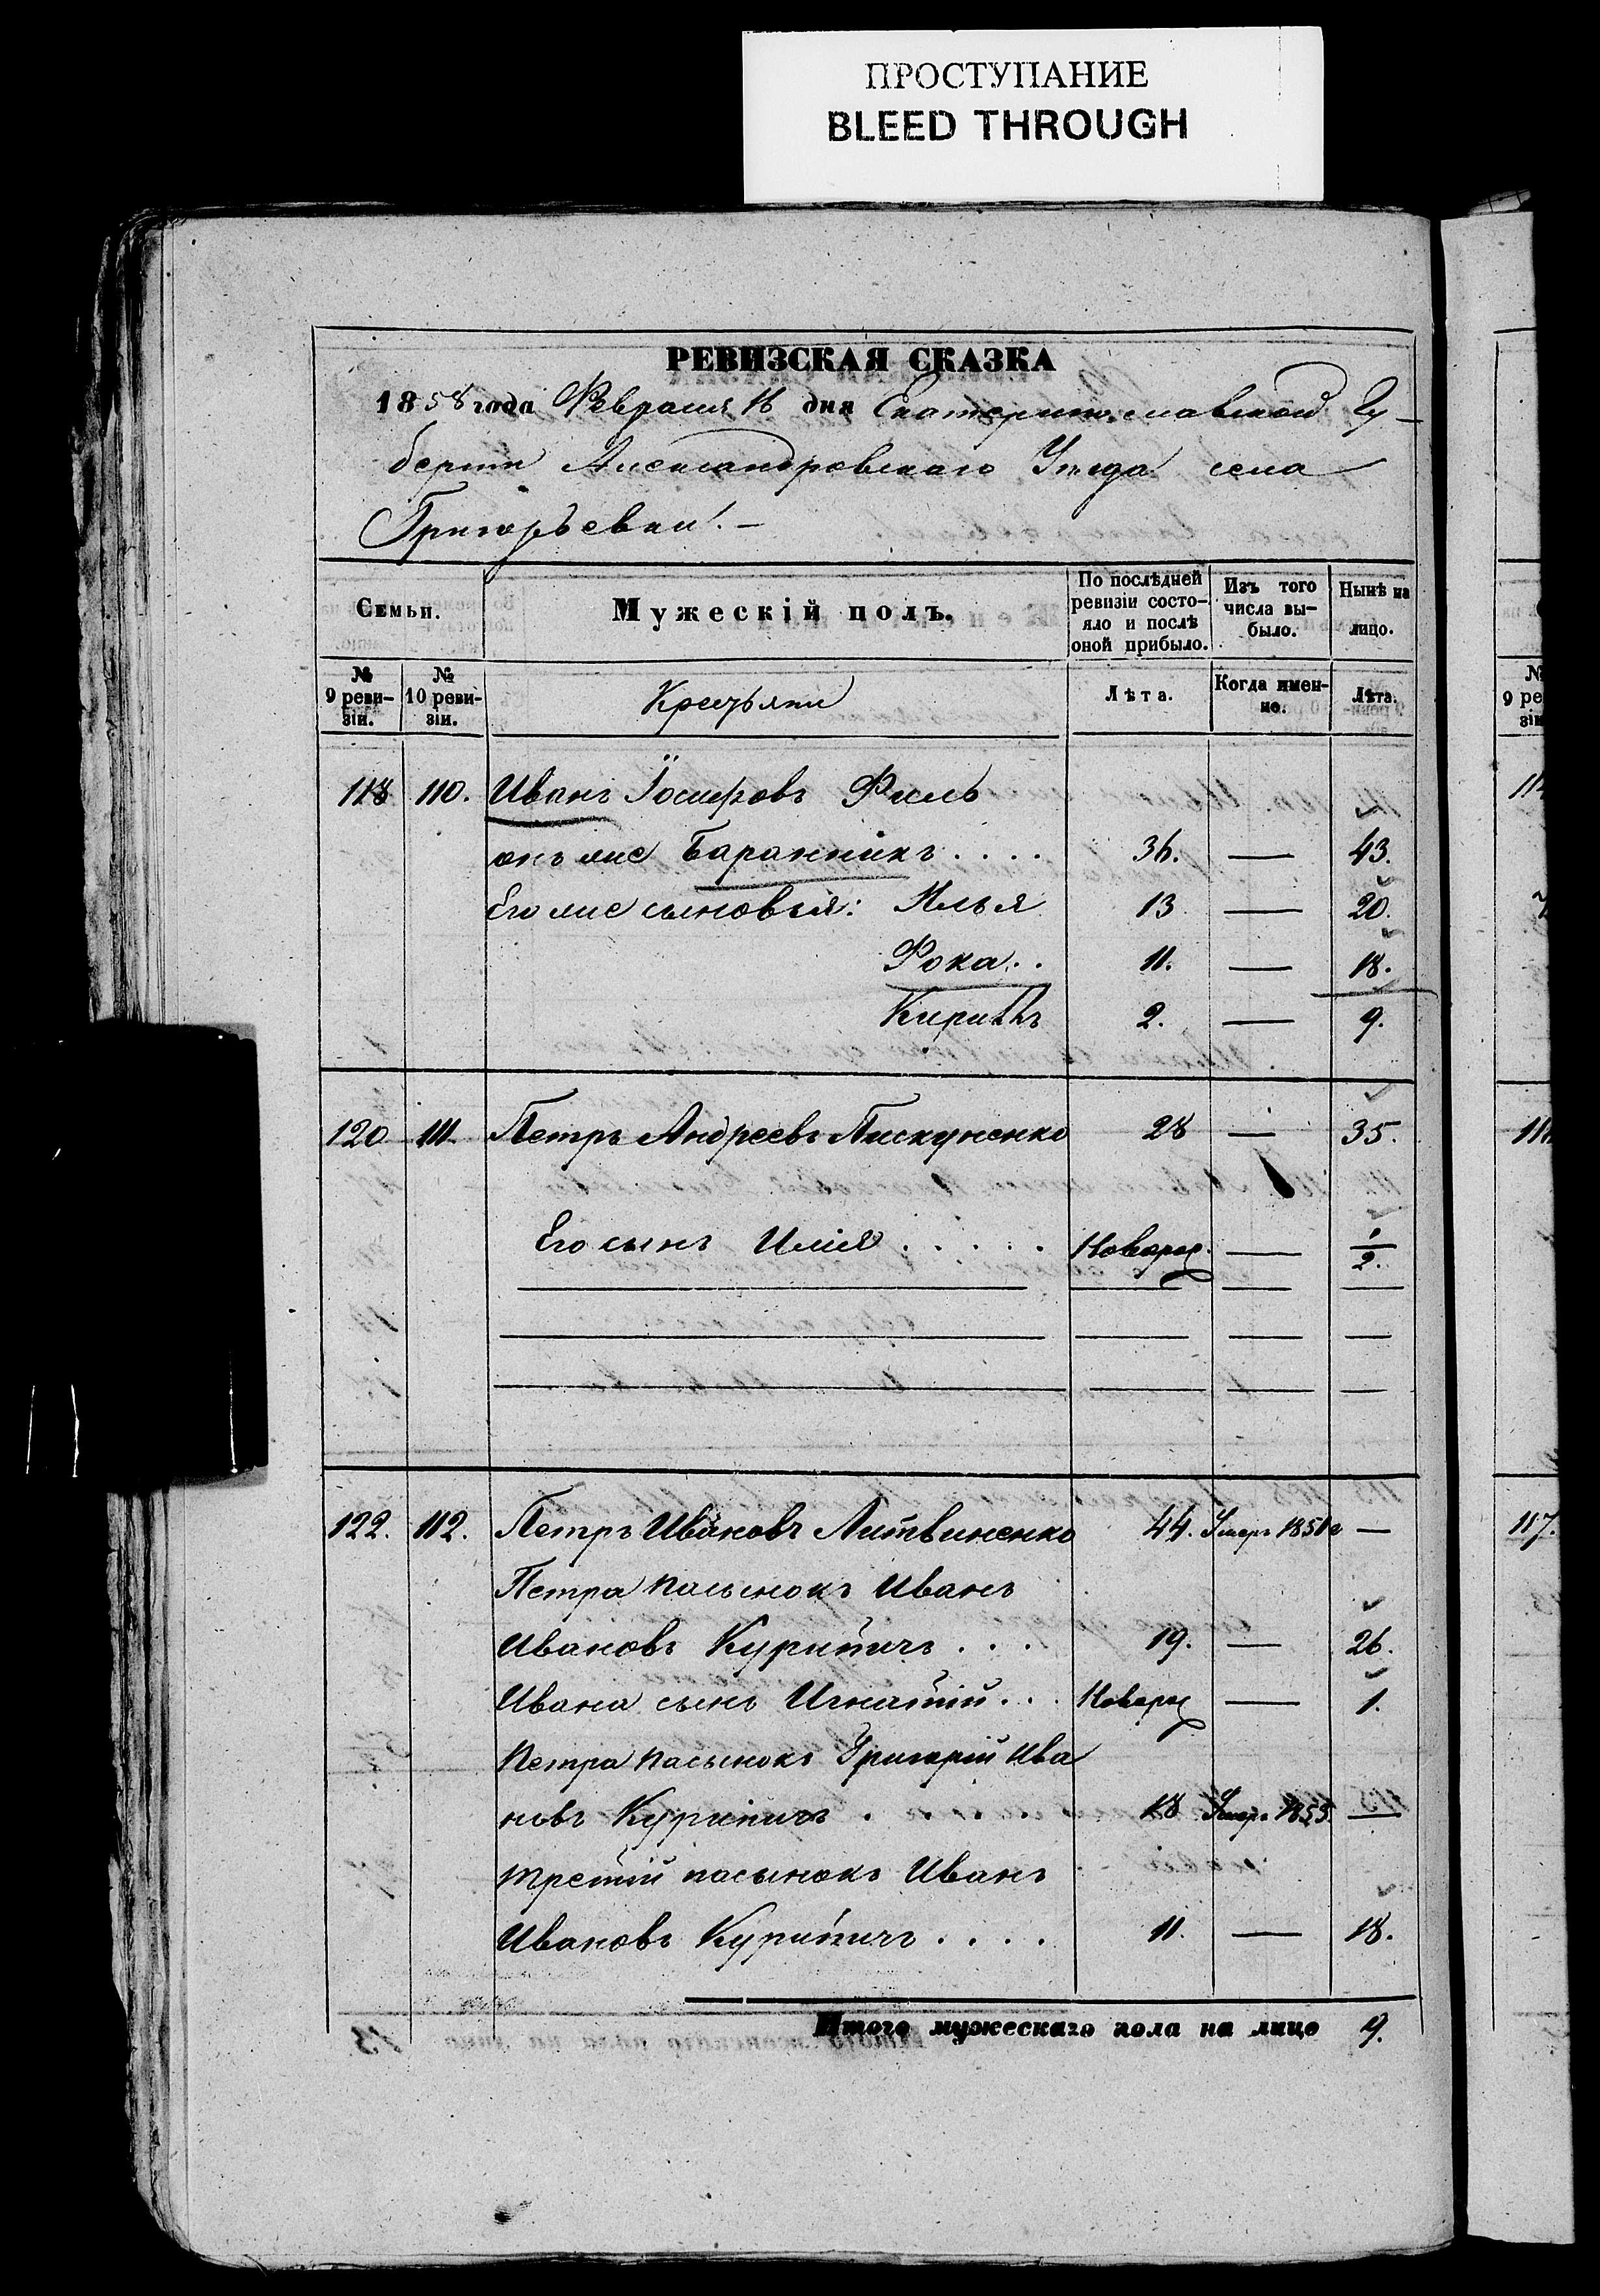 ПРОСТУПАНИЕ
BLEED THROUGH
РЕВИЗСКАЯ СКАЗКА
1858 года Февраля 18 дня Екатеринославской Гу-
берніи Александровскаго Уѣзда села
Григорьевки.-
Семьи.
Мужескій полъ.
По послѣдней ревизіи состо-яло и послѣ оной прибыло.
Изъ того числа вы-было.
Нынѣ на лицо.
№ 9 реви-зіи.
№ 10 реви-зіи.
Крестьяни
Лѣта.
Когда имен-но.
Лѣта.
118 110. Иванъ Іосифовъ Филь
онъ же Баранникъ.... 36. — 43.
Его же сыновья: Илья 13 — 20.
Фока.. 11. — 18.
Кирилъ 2. — 9.
120 111 Петръ Андреевъ Пискуненко 28 — 35.
Его сынъ Илія..... Новорож. — 1/2.
122. 112. Петръ Ивановъ Литвиненко 44. Умеръ 1851 г —
Петра пасынокъ Иванъ
Ивановъ Курипичъ... 19. — 26.
Ивана сынъ Игнатій... Новорож — 1.
Петра пасынокъ Григорій Ива
новъ Курипичъ..... 18 Умеръ 1853. —
третій пасынокъ Иванъ
Ивановъ Курипичъ.... 11. — 18.
Итого мужескаго пола на лицо 9.
№
9 ре
зіи
117.